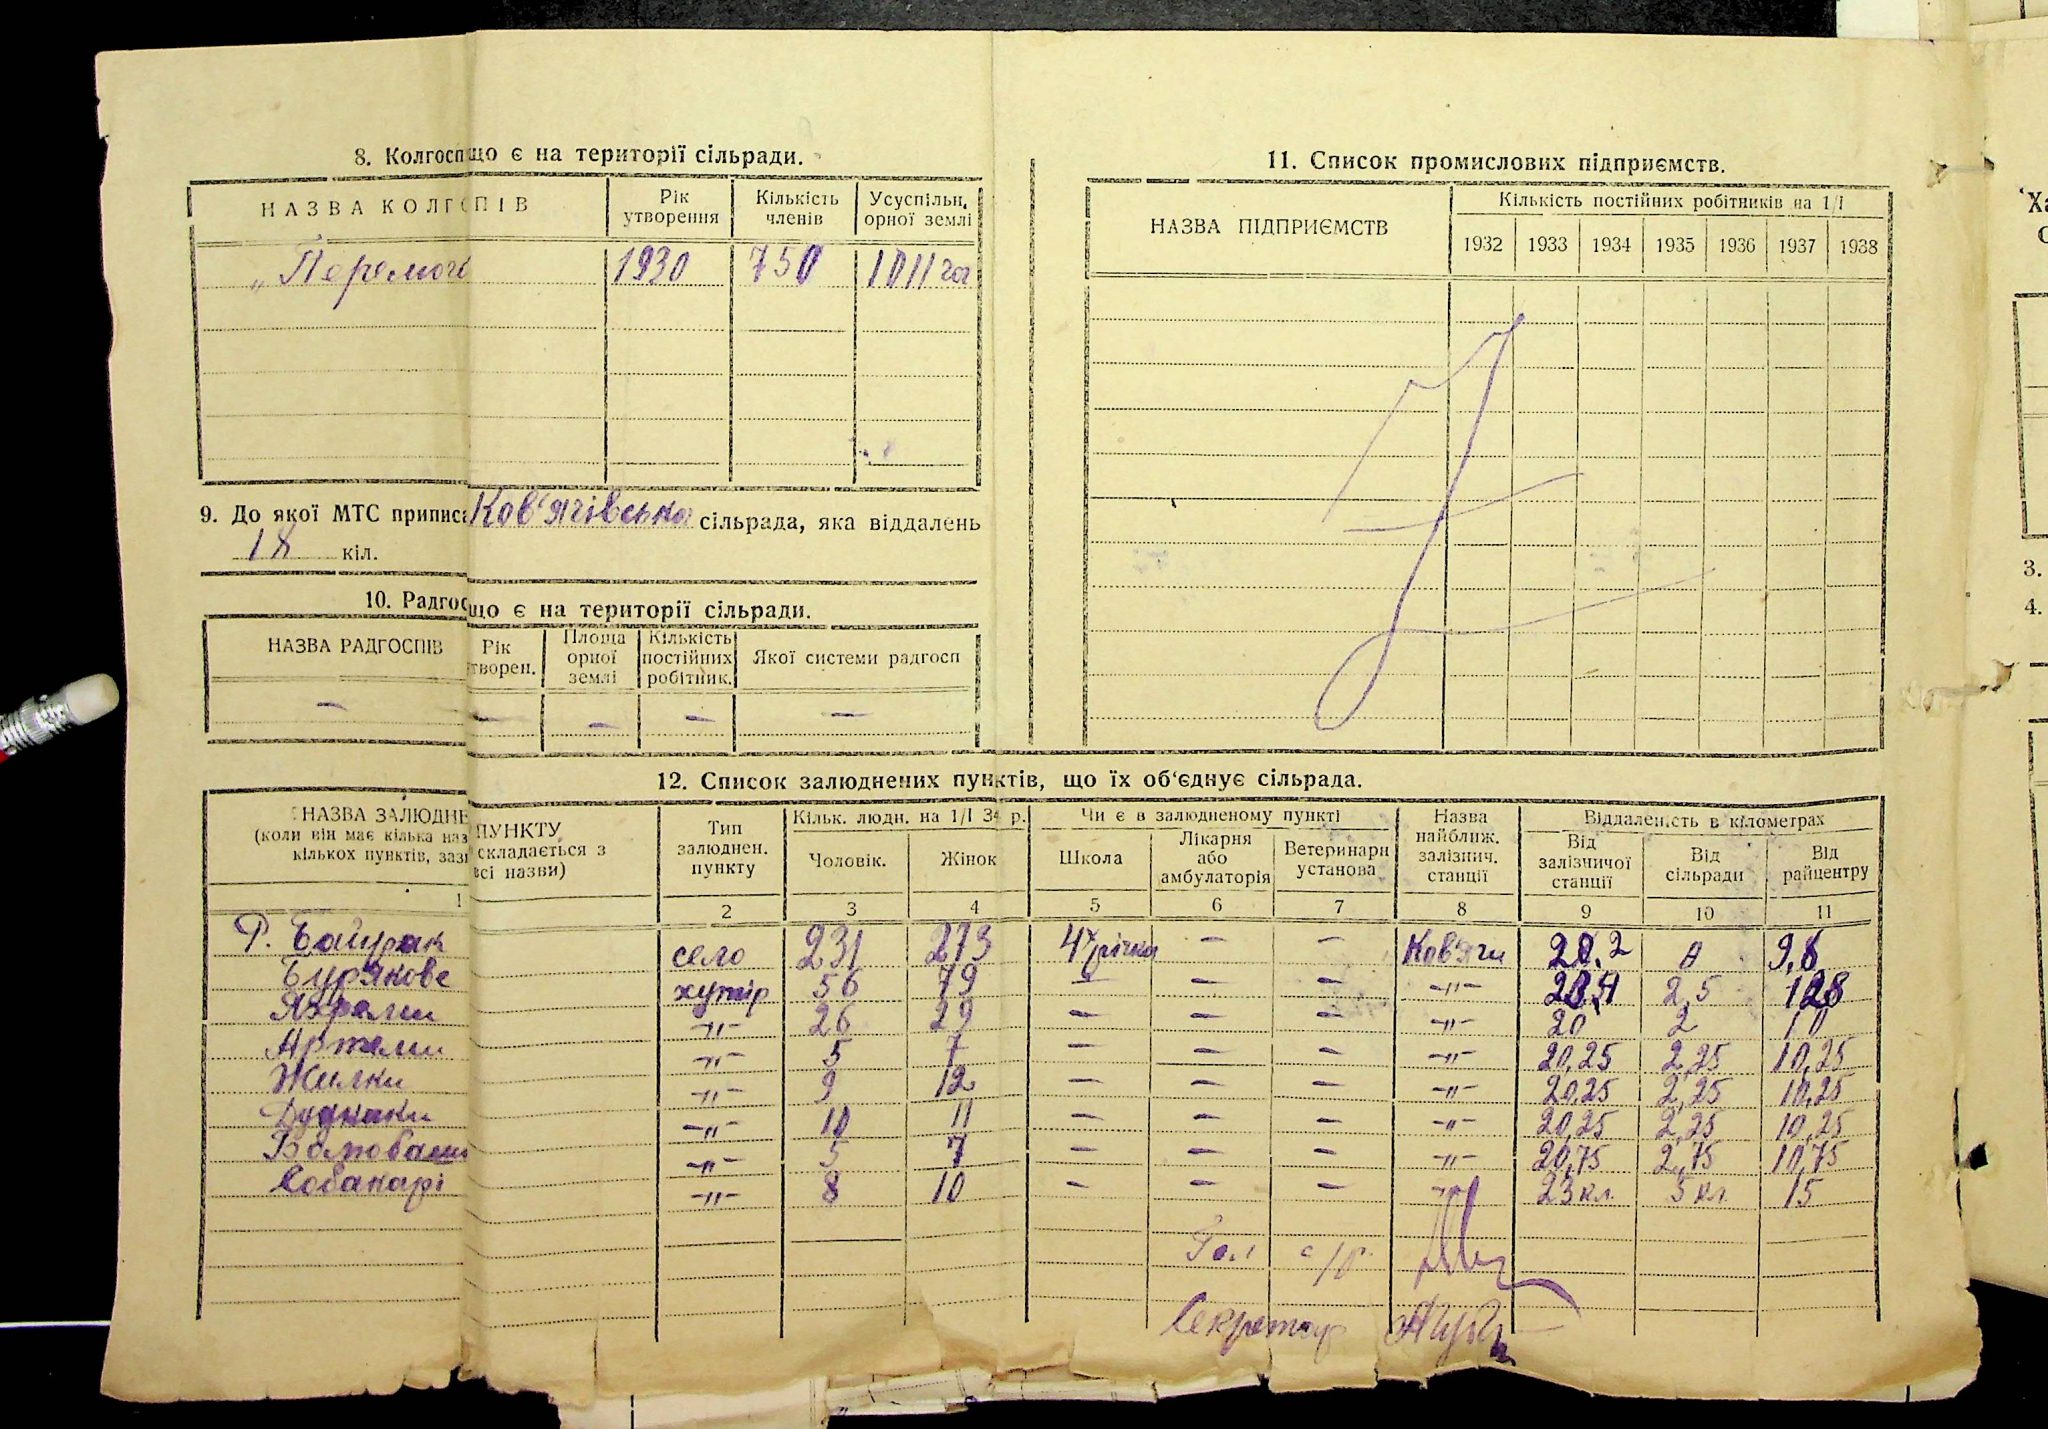 8. Колгосп що є на території сільради.
НАЗВА КОЛГОСПІВ Рік утворення Кількість членів Усуспільн. орної землі
„Перемог 1930 750 1011 га
9. До якої МТС приписа Ков'ягівська сільрада, яка віддалень
18 кіл.
10. Радгос що є на території сільради.
НАЗВА РАДГОСПІВ Рік творен. Площа орної землі Кількість постійних робітник. Якої системи радгосп
— — — — —
11. Список промислових підприємств.
НАЗВА ПІДПРИЄМСТВ Кількість постійних робітників на 1/I
1932 1933 1934 1935 1936 1937 1938
12. Список залюднених пунктів, що їх об'єднує сільрада.
НАЗВА ЗАЛЮДНЕ ПУНКТУ
(коли він має кілька наз складається з
кількох пунктів, заз всі назви)
Тип залюднен. пункту
Кільк. людн. на 1/I 34 р.
Чоловік. Жінок
Чи є в залюдненому пункті
Школа Лікарня або амбулаторія Ветеринарн установа
Назва найближ. залізнич. станції
Віддаленість в кілометрах
Від залізничої станції Від сільради Від райцентру
1 2 3 4 5 6 7 8 9 10 11
Р. Байрак село 231 273 4х річка — — Ков'яги 20,2 0 9,8
Бурякове хутір 56 79 — — — -"- 2,5 128
Яхреми -"- 26 29 — — — -"- 20 2 10
Артеми -"- 5 7 — — — -"- 20,25 2,25 10,25
Жилки -"- 9 12 — — — -"- 20,25 2,25 10,25
Дудники -"- 10 11 — — — -"- 20,25 2,25 10,25
-"- 5 7 — — — -"- 20,75 2,75 10,75
Собакарі -"- 8 10 — — — -"- 23 кл. 5 кл. 15
Гол с/р
Секретар
3.
4.